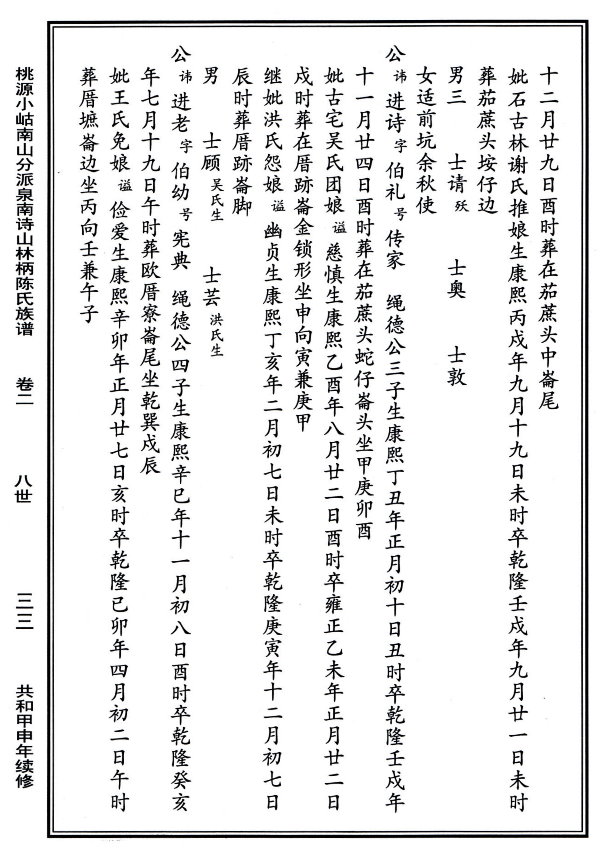 十二月廿九日酉时葬在茄蔗头中崙尾
妣石古林谢氏推娘生康熙丙戌年九月十九日未时卒乾隆壬戌年九月廿一日未时
葬茄蔗头垵仔边
男三 士请 殀 士奥 士敦
女适前坑余秋使
公 讳 进诗 字 伯礼 号 传家 绳德公三子生康熙丁丑年正月初十日丑时卒乾隆壬戌年
十一月廿四日酉时葬在茄蔗头蛇仔崙头坐甲庚卯酉
妣古宅吴氏团娘 谥 慈慎生康熙乙酉年八月廿二日酉时卒雍正乙未年正月廿二日
戌时葬在厝跡崙金锁形坐申向寅兼庚甲
继妣洪氏怨娘 谥 幽贞生康熙丁亥年二月初七日未时卒乾隆庚寅年十二月初七日
辰时葬厝跡崙脚
男 士顾 吴氏生 士芸 洪氏生
公 讳 进老 字 伯幼 号 宪典 绳德公四子生康熙辛巳年十一月初八日酉时卒乾隆癸亥
年七月十九日午时葬欧厝寮崙尾坐乾巽戌辰
妣王氏免娘 谥 俭爱生康熙辛卯年正月廿七日亥时卒乾隆己卯年四月初二日午时
葬厝墭崙边坐丙向壬兼午子
桃源小岵南山分派泉南诗山林柄陈氏族谱 卷二 八世 三三 共和甲申年续修